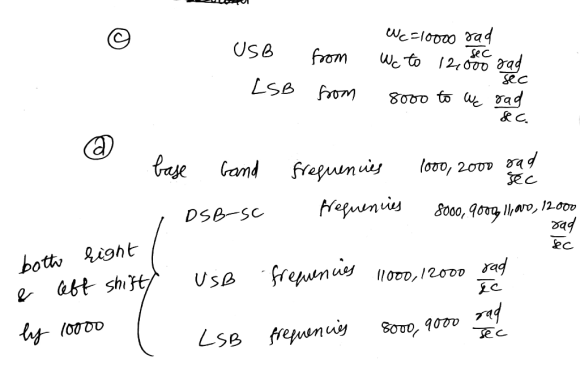 ⓒ
Wc = 10000 rad/sec
USB from Wc to 12,000 rad/sec
LSB from 8000 to Wc rad/sec.
ⓓ
base band frequencies 1000, 2000 rad/sec
DSB-SC frequencies 8000, 9000, 11,000, 12000 rad/sec
both right
& left shift
by 10000
USB frequencies 11000, 12000 rad/sec
LSB frequencies 8000, 9000 rad/sec